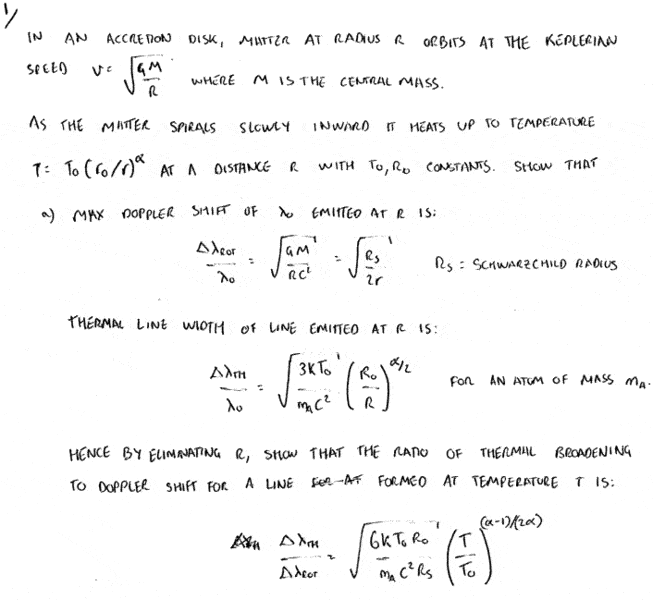 1/
IN AN ACCRETION DISK, MATTER AT RADIUS R ORBITS AT THE KEPLERIAN
SPEED v = √(GM/R) WHERE M IS THE CENTRAL MASS.
AS THE MATTER SPIRALS SLOWLY INWARD IT HEATS UP TO TEMPERATURE
T = T₀(r₀/r)^α AT A DISTANCE R WITH T₀, R₀ CONSTANTS. SHOW THAT
a) MAX DOPPLER SHIFT OF λ₀ EMITTED AT R IS:
Δλ_ROT/λ₀ = √(GM/RC²) = √(R_S/2r) R_S : SCHWARZCHILD RADIUS
THERMAL LINE WIDTH OF LINE EMITTED AT R IS:
Δλ_TH/λ₀ = √(3KT₀/m_A C²) (R₀/R)^(α/2) FOR AN ATOM OF MASS m_A.
HENCE BY ELIMINATING R, SHOW THAT THE RATIO OF THERMAL BROADENING
TO DOPPLER SHIFT FOR A LINE FORMED AT TEMPERATURE T IS:
Δλ_TH/Δλ_ROT = √(6KT₀R₀/m_A C² R_S) (T/T₀)^((α-1)/(2α))